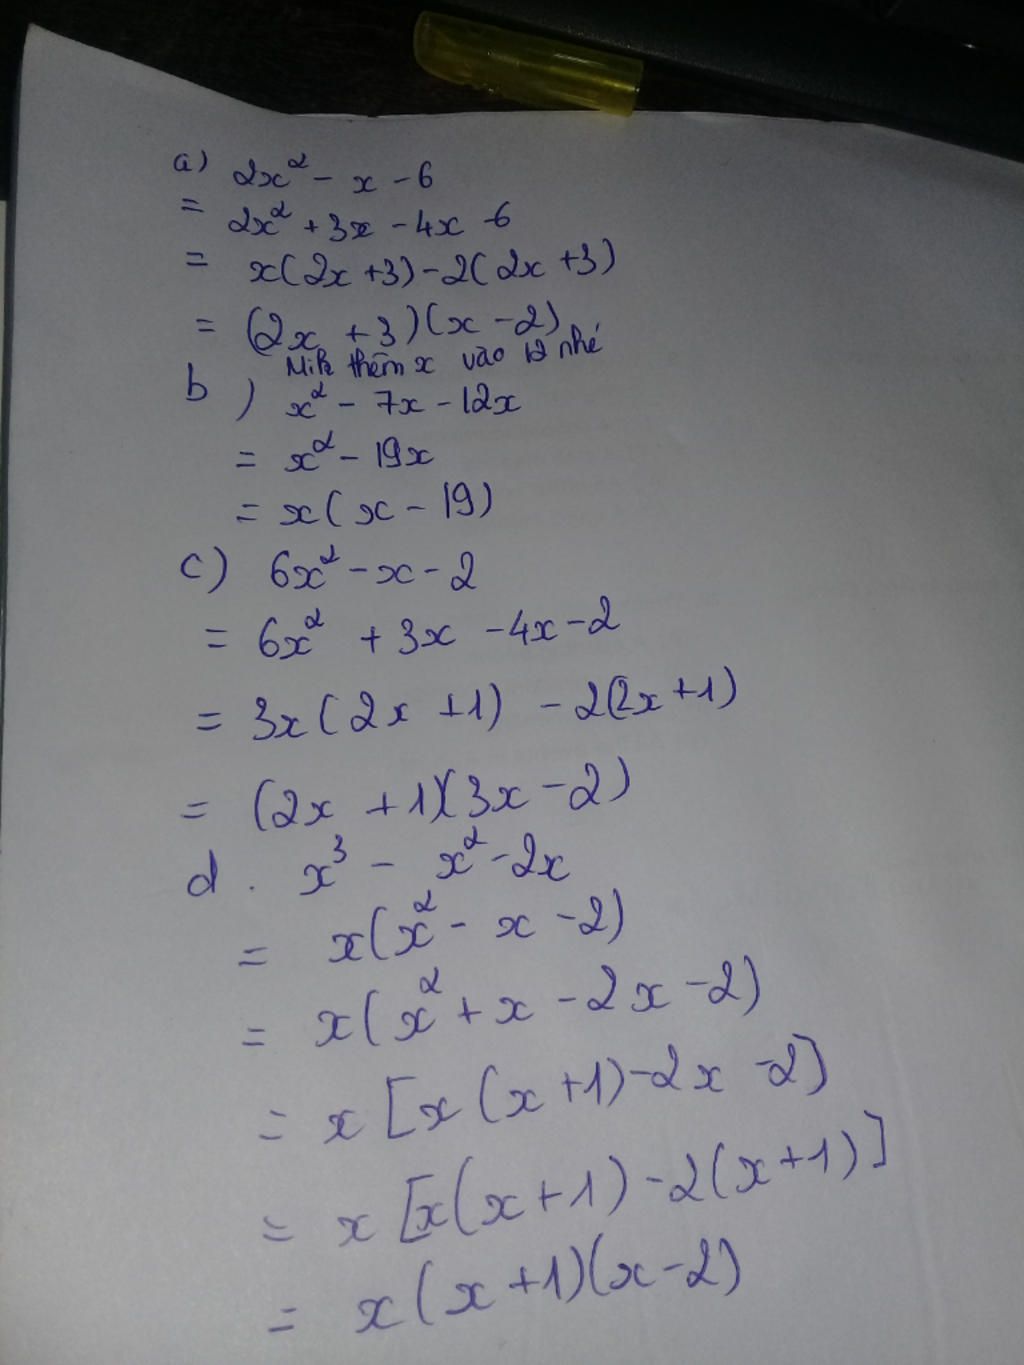 a) 2x² - x - 6
= 2x² + 3x - 4x - 6
= x(2x + 3) - 2(2x + 3)
= (2x + 3)(x - 2)
Mik thêm x vào 12 nhé
b) x² - 7x - 12x
= x² - 19x
= x(x - 19)
c) 6x² - x - 2
= 6x² + 3x - 4x - 2
= 3x(2x + 1) - 2(2x + 1)
= (2x + 1)(3x - 2)
d. x³ - x² - 2x
= x(x² - x - 2)
= x(x² + x - 2x - 2)
= x[x(x + 1) - 2x - 2]
= x[x(x + 1) - 2(x + 1)]
= x(x + 1)(x - 2)